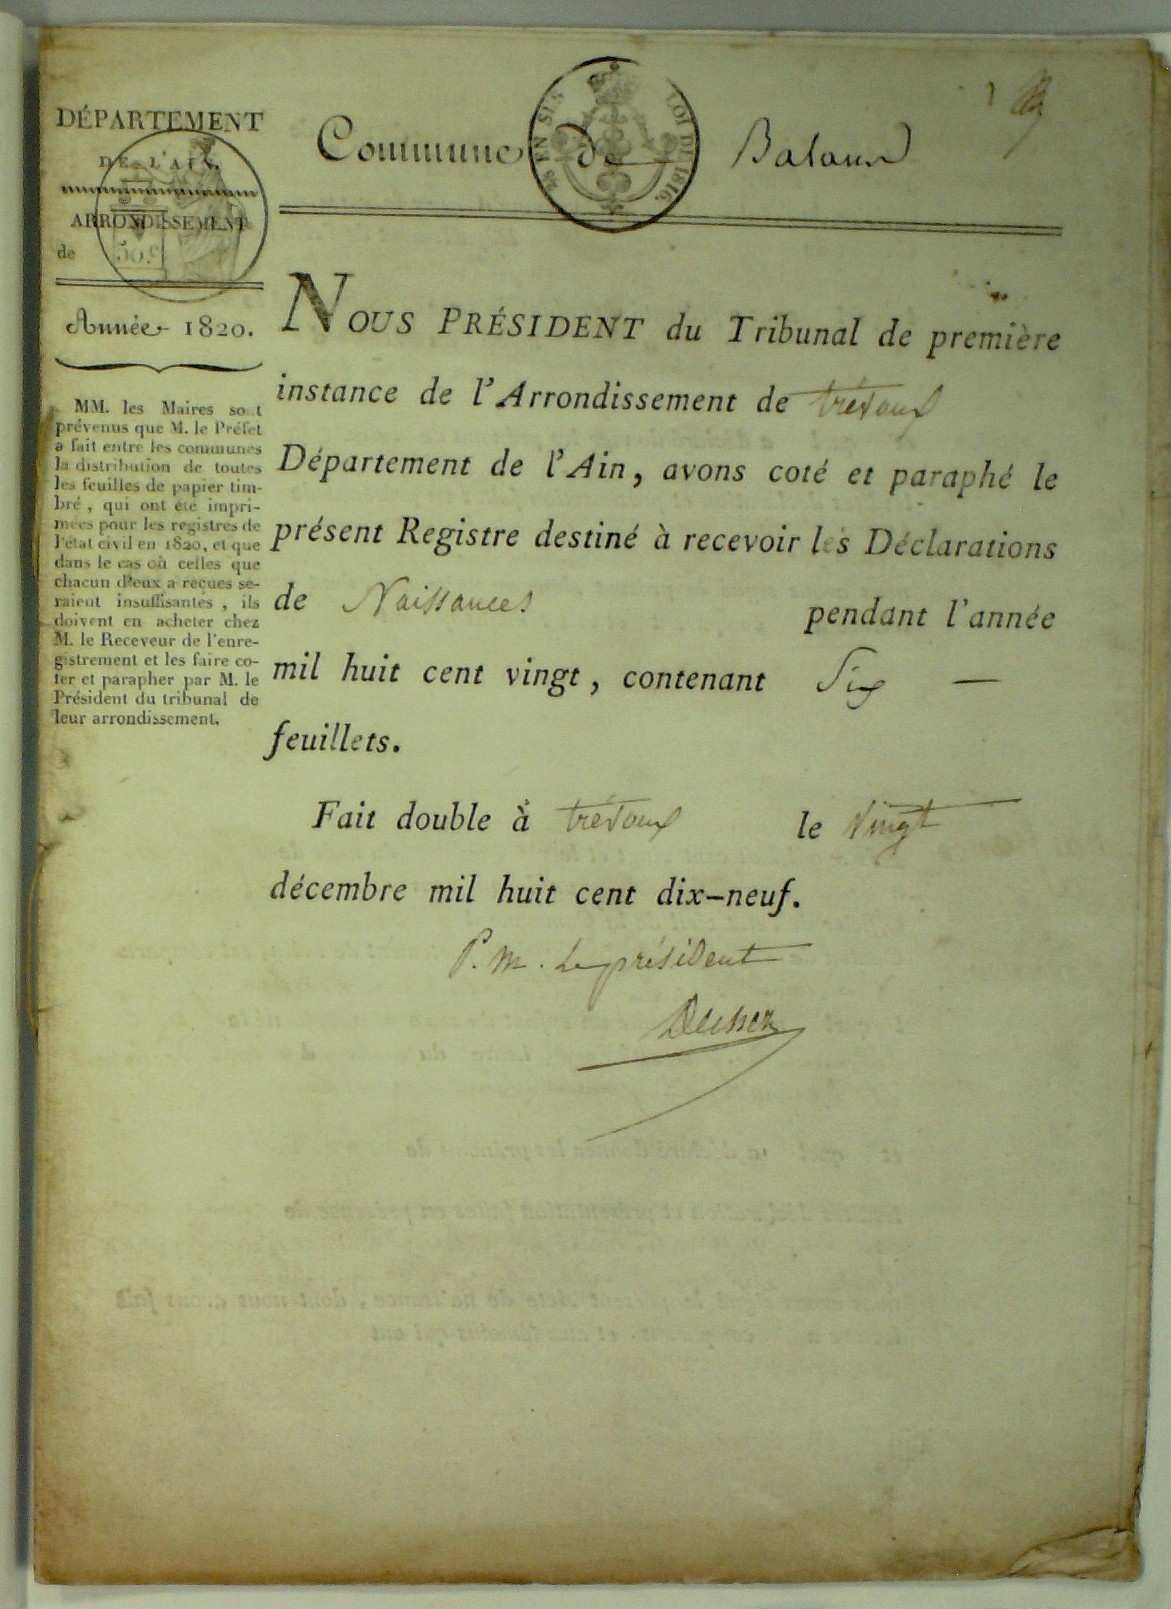 DÉPARTEMENT
DE L'AIN.
ARRONDISSEMENT
de
50.c
Année 1820.
MM. les Maires sont
prévenus que M. le Préfet
a fait entre les communes
la distribution de toutes
les feuilles de papier tim-
bré, qui ont été impri-
mées pour les registres de
l'état civil en 1820, et que
dans le cas où celles que
chacun d'eux a reçues se-
raient insuffisantes, ils
doivent en acheter chez
M. le Receveur de l'enre-
gistrement et les faire co-
ter et parapher par M. le
Président du tribunal de
leur arrondissement.
Commune de Balan
LOI DE 1816.
NOUS PRÉSIDENT du Tribunal de première
instance de l'Arrondissement de trévoux
Département de l'Ain, avons coté et paraphé le
présent Registre destiné à recevoir les Déclarations
de Naissances pendant l'année
mil huit cent vingt, contenant Six —
feuillets.
Fait double à trévoux le vingt
décembre mil huit cent dix-neuf.
P. M. Le président